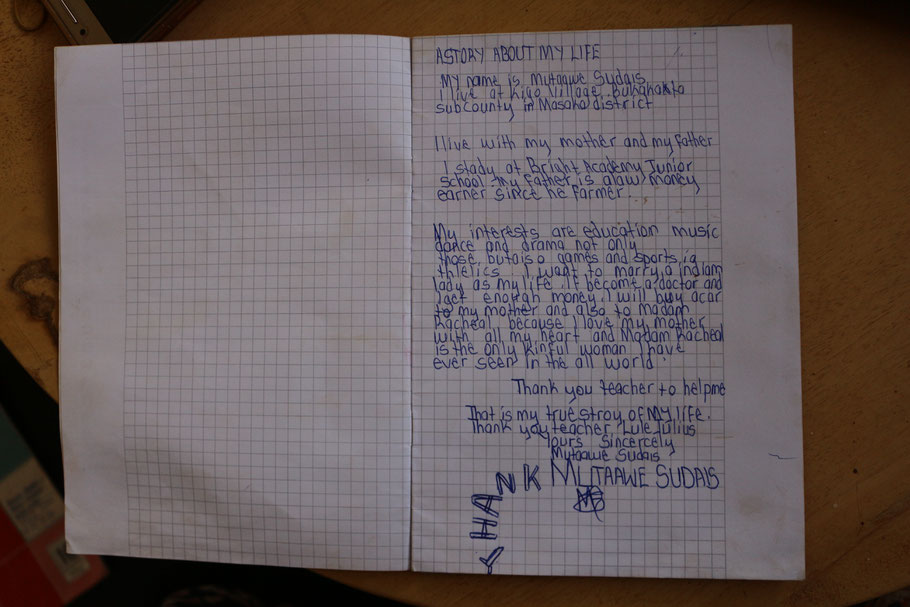 ASTORY ABOUT MY LIFE
My name is Mutaawe Sydais
I live at Kigo Village Bukakata
subcounty in Masaka district
I live with my mother and my father
I stady at Bright Academy Junior
school my father is alaw money
earner since he farmer.
My interests are education music
dance and drama not only
those, but also games and sports ig
thletics I want to marry a indiam
lady as my life. If become a doctor and
I get enough money, I will buy acar
to my mother and also to Madam
Racheal because I love my mother
with all my heart and Madam Racheal
is the only kinful woman I have
ever seen in the all world.
Thank you teacher to helpme
That is my true stroy of MY life.
Thank you teacher, Lule Julius
Yours Sincerely
Mutaawe Sudais
THANK MUTAAWE SUDAIS